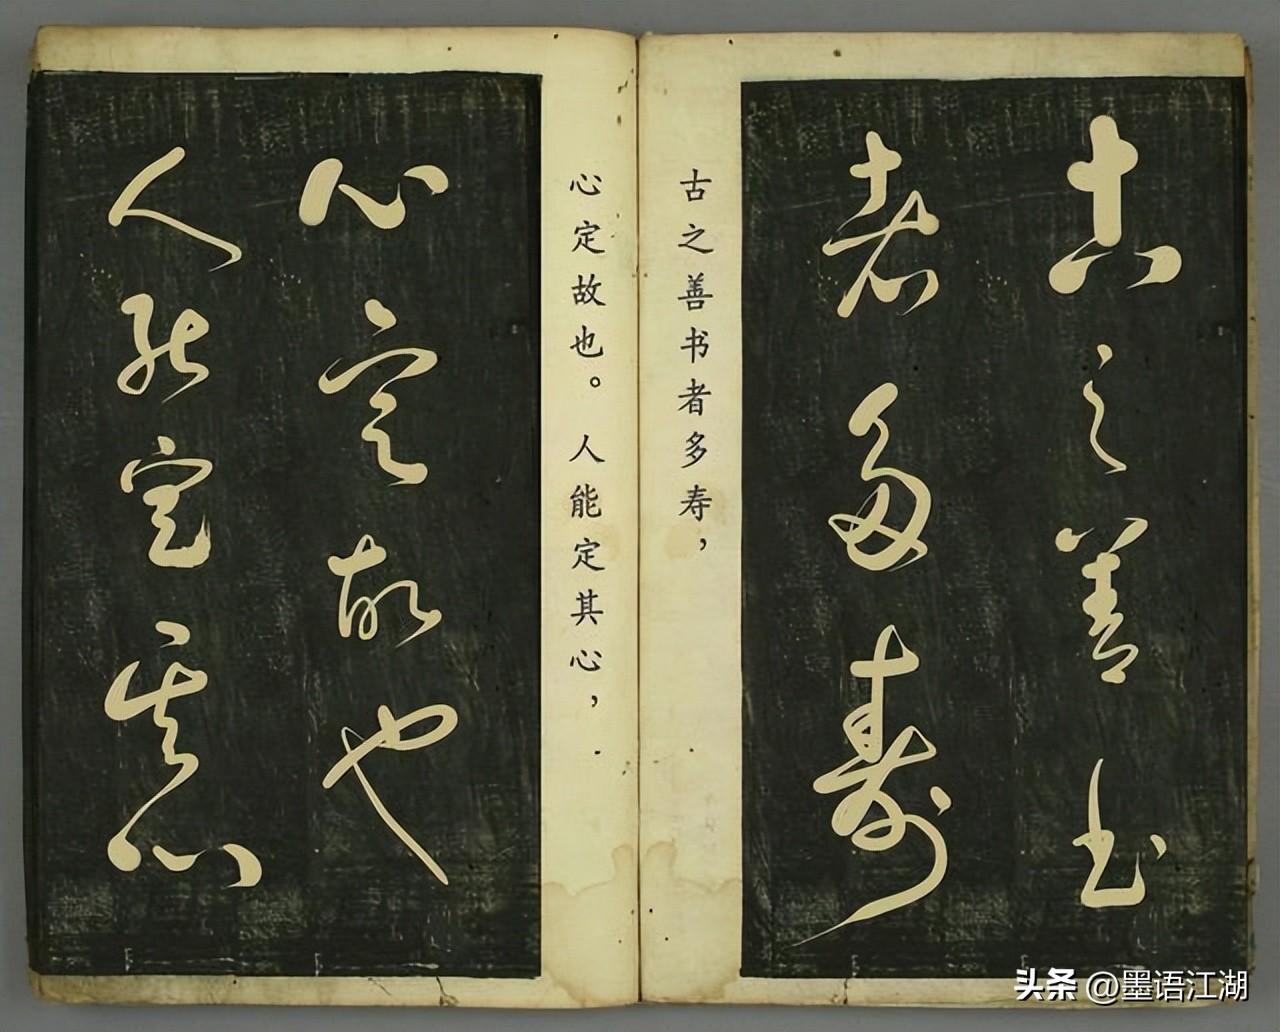 古之善书
者多寿
古之善书者多寿，
心定故也。人能定其心，
心定故也
人能定其心
头条 @墨语江湖